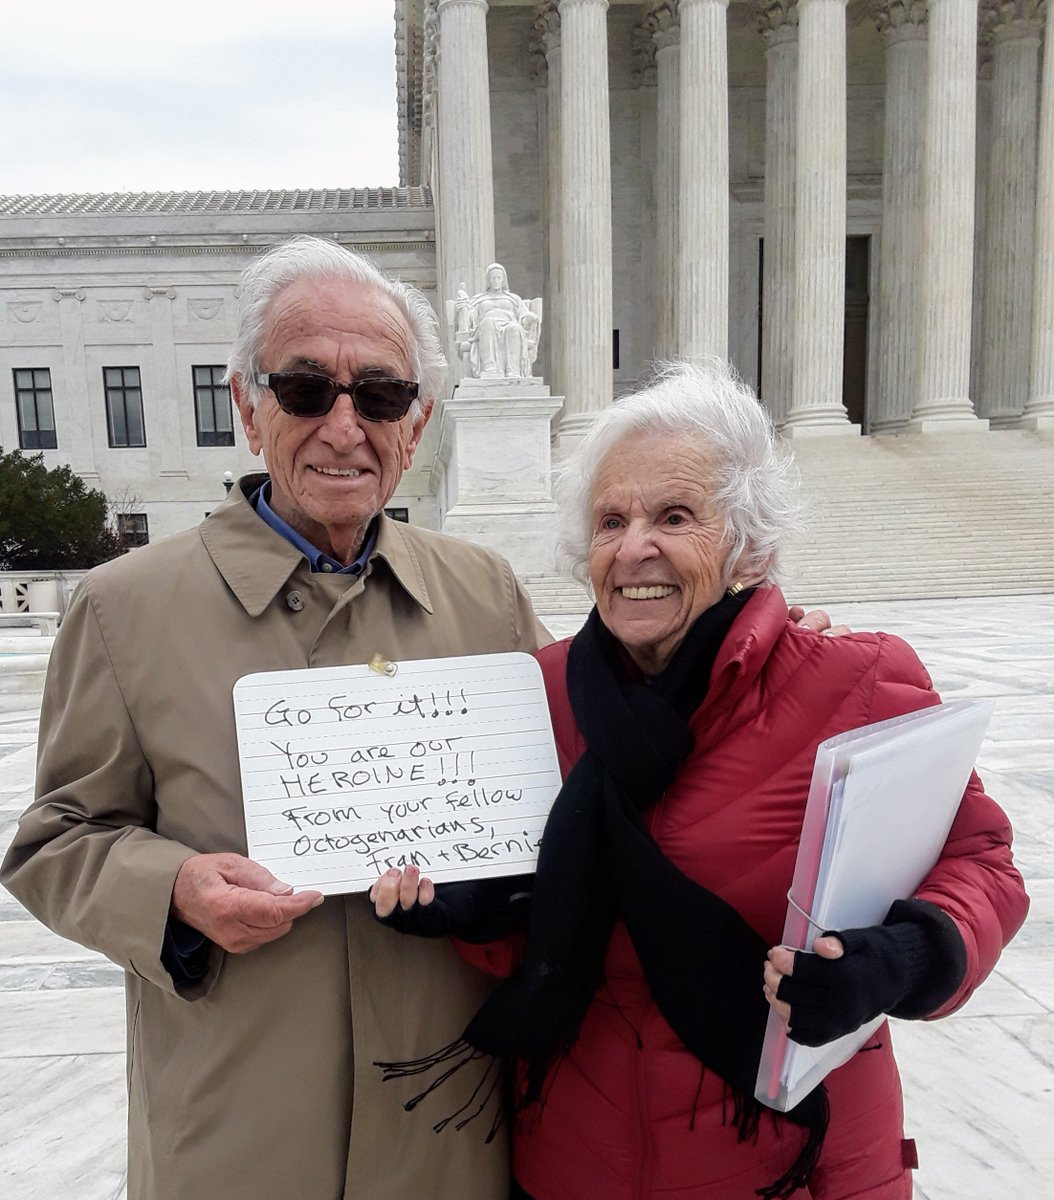 Go for it!!!
You are our
HEROINE!!!
From your fellow
Octogenarians,
Fran + Bernie